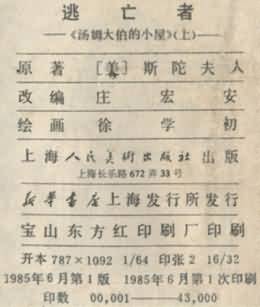 逃亡者
——《汤姆大伯的小屋》(上)——
原著 [美] 斯陀夫人
改编 庄宏安
绘画 徐学初
上海人民美術出版社 出版
上海长乐路 672 弄 33 号
新华書店上海发行所发行
宝山东方红印刷厂印刷
开本 787×1092 1/64 印张 2 16/32
1985年6月第1版 1985年6月第1次印刷
印数 00,001——43,000